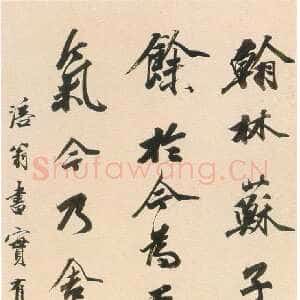 翰林蘇子
餘於今為
氣今乃舍
涪翁書實有
Shufawang.CN